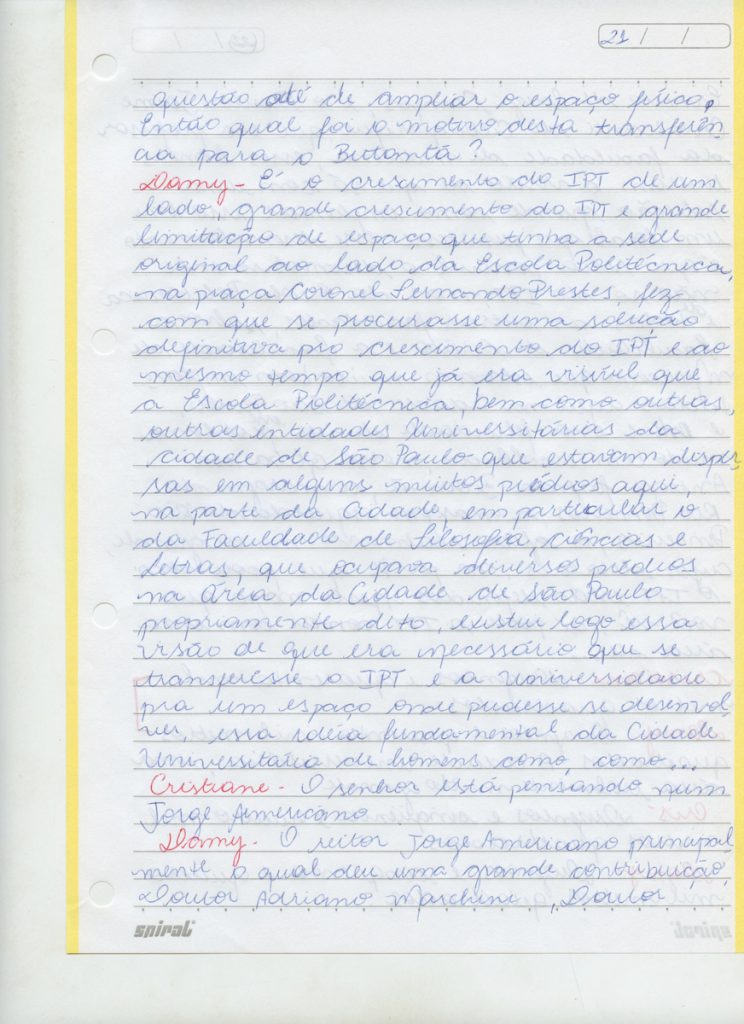 21 / /
questão até de ampliar o espaço físico.
Então qual foi o motivo desta transferên
cia para o Butantã?
Damy - É o crescimento do IPT de um
lado, grande crescimento do IPT e grande
limitação de espaço que tinha a sede
original ao lado da Escola Politécnica,
na praça Coronel Fernando Prestes, fez
com que se procurasse uma solução
definitiva pro crescimento do IPT e ao
mesmo tempo que já era visível que
a Escola Politécnica, bem como outras,
outras entidades Universitárias da
cidade de São Paulo que estavam disper
sas em alguns muitos prédios aqui,
na parte da Cidade, em particular o
da Faculdade de Filosofia, ciências e
Letras, que ocupava diversos prédios
na área da Cidade de São Paulo
propriamente dito, existiu logo essa
visão de que era necessário que se
transferesse o IPT e a Universidade
pra um espaço onde pudesse se desenvol
ver, essa idéia fundamental da Cidade
Universitária de homens como, como...
Cristiane - O senhor está pensando num
Jorge Americano
Damy - O reitor Jorge Americano principal
mente o qual deu uma grande contribuição,
Doutor Adriano Marchini, Doutor
spiral